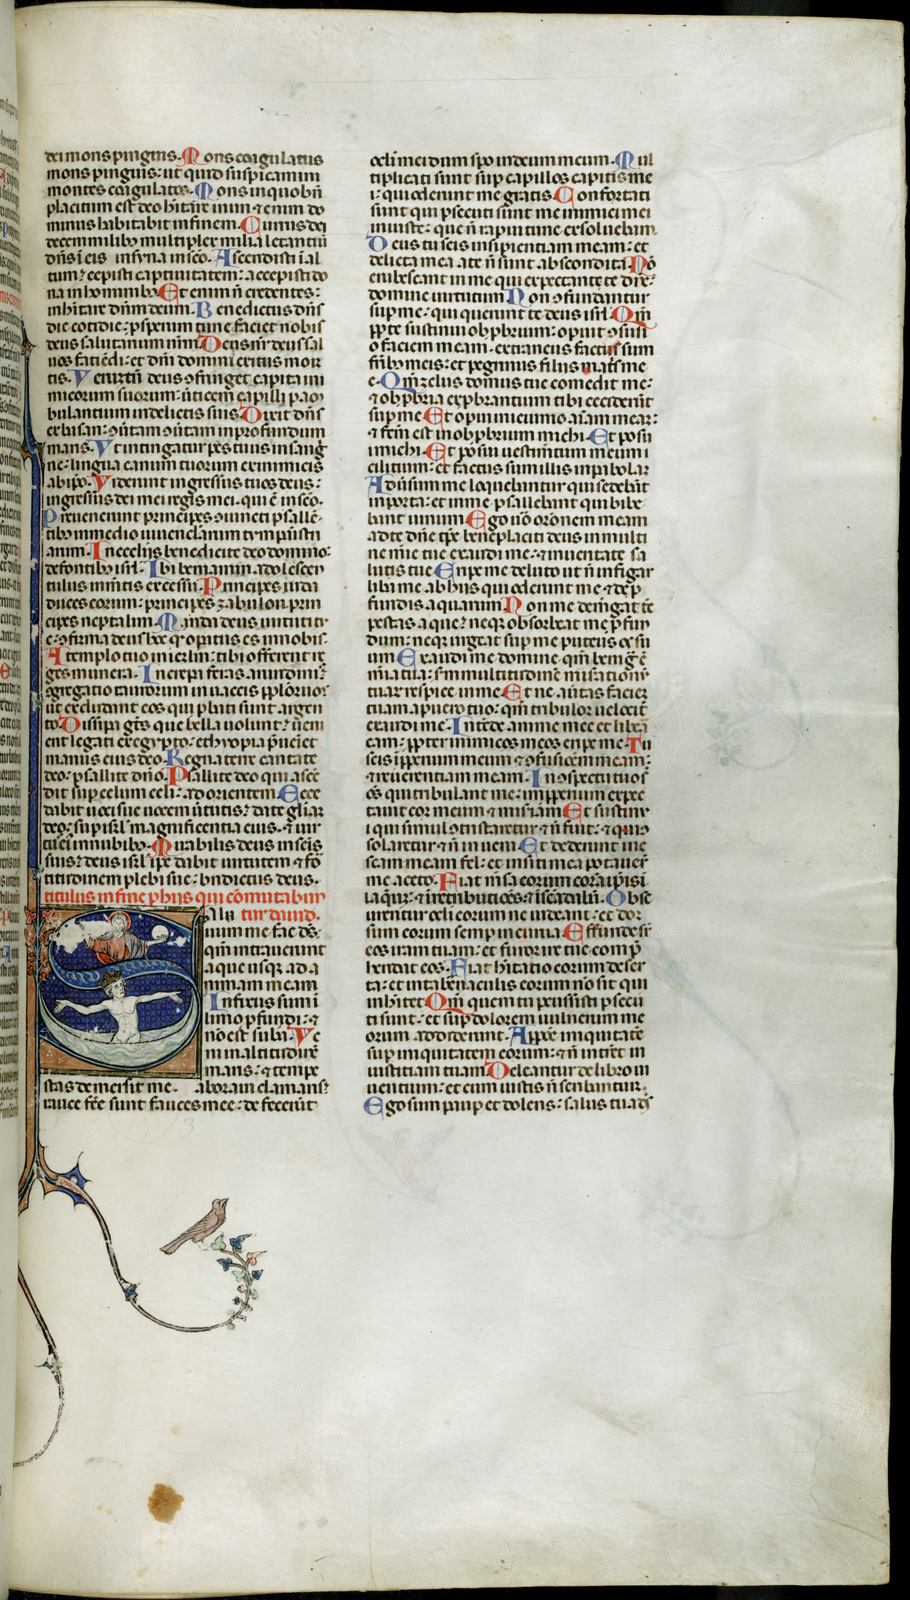 dei mons pinguis. Mons coagulatus
mons pinguis: ut quid suspicamini
montes coagulatos. Mons in quo bn̄
placitum est deo h̄itare in eum ⁊ enim do
minus habitabit in finem. Currus dei
decem milibꝫ multiplex milia letantiū
dn̄s ī eis in syna in sc̄o. Ascendisti ī al
tum: cepisti captiuitatem: accepisti do
na in hominibꝫ Et enim n̄ credentes:
inh̄itare dn̄m deum. Benedictus dn̄s
die cotidie: ꝓsperum iter faciet nobis
deus salutarium nr̄m Deus nr̄ deus sal
uos faciēdi: et dn̄i domini exitus mor
tis. Verumt̄n deus ꝯfringet capita ini
micorum suorum: u̇ticem capilli p̄am
bulantium in delictis suis. Dixit dn̄s
ex basan: ꝯu̇tam ꝯu̇tam in profundum
maris. Vt intingatur pes tuus in sang̓
ne: lingua canum tuorum ex inimicis
ab ip̄o. Viderunt ingressus tuos deus:
ingressus dei mei regis mei. qui ē in sc̄o.
Preuenerunt principes ꝯiuncti psallē
tibꝫ in medio iuuencularum tympanistri
arum. In ecclijs benedicite deo domino:
de fontibꝫ isrl̄. Ibi beniamin adolescen
tulus in mētis excessu. Principes iuda
duces eorum: principes zabulon prin
cipes neptalim. Manda deus uirtuti tu
e: ꝯfirma deus hoc qꝺ opatus es in nobis.
A templo tuo in ierl̄m: tibi offerent re
ges munera. Increpa feras arundinis
ꝯgregatio taurorum in uaccis ppl̄orum:
ut excludant eos qui ꝓbati sunt argen
to. Dissipa gētes que bella uolunt: ueni
ent legati ex egypto: ethyopia p̄ueniet
manus eius deo. Regna terre cantate
deo: psallite dn̄o. Psallite deo qui ascē
dit sup celum celi: ad orientem. Ecce
dabit uoci sue uocem u̇tutis: date gl̄iam
deo: sup isrl̄ magnificentia eius. ⁊ uir
tꝰ ei in nubibꝫ. Mirabilis deus in sc̄is
suis: deus isrl̄ ip̄e dabit uirtutem ⁊ for
titudinem plebi sue: bn̄dictus deus.
titulus in fine p̄ hijs qui cōmutabūn
tur dauid.
Saluum me fac ds̄:
qm̄ intrauerunt
aque usqꝫ ad a
nimam meam
Infixus sum ī
limo ꝓfundi: ⁊
nō est subā. Ve
ni in altitudinē
maris: ⁊ tempe
stas demersit me. Laboraui clamans:
rauce fc̄e sunt fauces mee: defecerūt
oculi mei dum spo in deum meum. Mul
tiplicati sunt sup capillos capitis me
i: qui oderunt me gratis. Confortati
sunt qui ꝑsecuti sunt me inimici mei
iniuste: que n̄ rapui tunc exsoluebam.
Deus tu scis insipientiam meam: et
delicta mea a te n̄ sunt abscondita. Nō
erubescant in me qui expectant te dn̄e:
domine uirtutum. Non ꝯfundantur
sup me: qui querunt te deus isrl̄. Qm̄
ppt̄ te sustinui obꝓbrium: opuit ꝯfusi
o faciem meam. extraneus factus sum
frībꝫ meis: et pegrinus filijs mat̓s me
e. Qm̄ zelus domus tue comedit me:
⁊ obꝓbria exꝓbrantium tibi ceciderūt
sup me. Et opui in ieiunio aīam meam:
⁊ fc̄m est in obꝓbrium michi. Et posu
i michi. Et posui uestimentum meum c
ilicium: et factus sum illis in pabolam
Aduersum me loquebantur qui sedebāt
in porta: et in me psallebant qui bibe
bant uinum. Ego u̇o orōnem meam
ad te dn̄e: tp̄c beneplaciti deus. in multi
ne mīe tue exaudi me: ⁊ in ueritate sa
lutis tue. Eripe me de luto ut n̄ infigar
libera me ab hijs qui oderunt me ⁊ de ꝓ
fundis aquarum. Non me demergat tē
pestas aque: neqꝫ obsorbeat me ꝓfun
dum: neqꝫ urgeat sup me puteus os su
um. Exaudi me domine qm̄ benig̓ ē
mīa tua: scd̄m multitudinē misationū
tuarum respice in me. Et ne au̇tas faciem
tuam a puero tuo: qm̄ tribulor uelocit̓
exaudi me. Intēde anime mee et libera
eam: ppter inimicos meos eripe me. Tu
scis īꝓperium meum ⁊ ꝯfusionem meam:
⁊ reuerentiam meam. In ꝯspectu tuo s̄t
oēs qui tribulant me: inꝓperium expec
tauit cor meum ⁊ misīam. Et sustinu
i qui simul ꝯtristaretur ⁊ n̄ fuit: ⁊ qui ꝯ
solaretur ⁊ n̄ inueni. Et dederunt in e
scam meam fel: et in siti mea potauert̄
me aceto. Fiat mēsa eorum coram ip̄is ī
laqum: ⁊ in retributiōes: ⁊ ī scandalū. Obsc
urentur oculi eorum ne uideant: et dor
sum eorum semp incurua. Effunde sr̄
eos iram tuam: et furor ire tue comp̄
hendat eos. Fiat h̄itatio eorum deser
ta: et in tab̄naculis eorum nō sit qui
inh̄itet. Qm̄ quem tu percussisti ꝑsecu
ti sunt: et sup dolorem uulnerum me
orum addiderunt. Appone iniquitatē
sup iniquitatem eorum: ⁊ n̄ intrēt in
iustitiam tuam. Deleantur de libro ui
uentium: et cum iustis n̄ scribantur.
Ego sum paup et dolens: salus tua ds̄